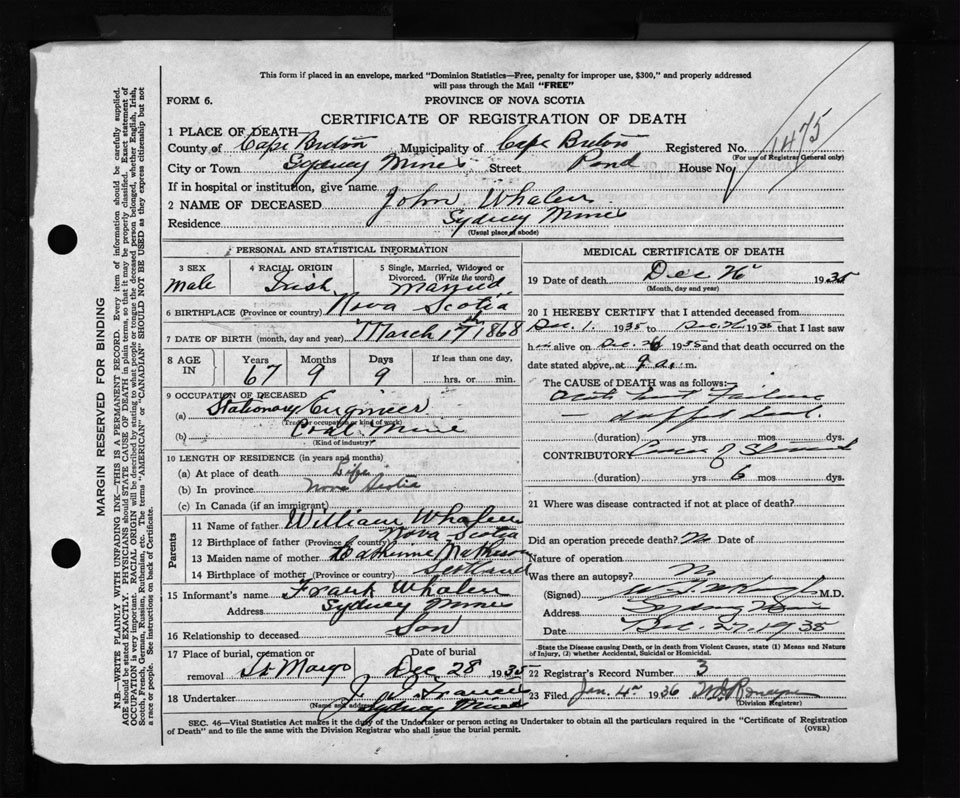 This form if placed in an envelope, marked "Dominion Statistics—Free, penalty for improper use, $300," and properly addressed
will pass through the Mail "FREE"
FORM 6.
PROVINCE OF NOVA SCOTIA
CERTIFICATE OF REGISTRATION OF DEATH
1 PLACE OF DEATH—
County of Cape Breton Municipality of Cape Breton Registered No. 1475
(For use of Registrar General only)
City or Town Sydney Mines Street Pond House No.
If in hospital or institution, give name
2 NAME OF DECEASED John Whalen
Residence Sydney Mines
(Usual place of abode)
PERSONAL AND STATISTICAL INFORMATION
3 SEX 4 RACIAL ORIGIN 5 Single, Married, Widowed or Divorced. (Write the word)
Male Irish Married
6 BIRTHPLACE (Province or country) Nova Scotia
7 DATE OF BIRTH (month, day and year) March 17 1868
8 AGE IN Years Months Days If less than one day,
67 9 9 hrs. or min.
9 OCCUPATION OF DECEASED
(a) Stationary Engineer
(Trade occupation or kind of work)
(b) Coal Mine
(Kind of industry)
10 LENGTH OF RESIDENCE (in years and months)
(a) At place of death Life
(b) In province Nova Scotia
(c) In Canada (if an immigrant)
Parents
11 Name of father William Whalen
12 Birthplace of father (Province or country) Nova Scotia
13 Maiden name of mother Catherine Matheson
14 Birthplace of mother (Province or country) Scotland
15 Informant's name Frank Whalen
Address Sydney Mines
16 Relationship to deceased Son
17 Place of burial, cremation or removal Date of burial
Dec 28 1935
18 Undertaker J. Francis
(Name and address) Sydney Mines
MEDICAL CERTIFICATE OF DEATH
19 Date of death Dec 26 1935
(Month, day and year)
20 I HEREBY CERTIFY that I attended deceased from
Dec. 1. 1935 to Dec. 26 1935 that I last saw
h alive on Dec. 26 1935 and that death occurred on the
date stated above, at 9 a. m.
The CAUSE of DEATH was as follows:
Heart Failure
(duration) yrs mos dys.
CONTRIBUTORY Cancer of Stomach
(duration) 6 mos dys.
21 Where was disease contracted if not at place of death?
Did an operation precede death? No Date of
Nature of operation
Was there an autopsy? No
(Signed) M.D.
Address Sydney Mines
Date Dec. 27, 1935
State the Disease causing Death, or in death from Violent Causes, state (1) Means and Nature
of Injury, (2) whether Accidental, Suicidal or Homicidal.
22 Registrar's Record Number 3
23 Filed Jan. 4th 1936
(Division Registrar)
SEC. 46—Vital Statistics Act makes it the duty of the Undertaker or person acting as Undertaker to obtain all the particulars required in the "Certificate of Registration
of Death" and to file the same with the Division Registrar who shall issue the burial permit.
(OVER)
MARGIN RESERVED FOR BINDING
N.B.—WRITE PLAINLY WITH UNFADING INK—THIS IS A PERMANENT RECORD. Every item of information should be carefully supplied.
AGE should be stated EXACTLY. PHYSICIANS should STATE CAUSE OF DEATH in plain terms, so that it may be properly classified. Exact statement of
OCCUPATION is very important. RACIAL ORIGIN will be described by stating to what people or tongue the deceased person belonged, whether English, Irish,
Scotch, French, German, Russian, Ruthenian, etc. The terms "AMERICAN" or "CANADIAN" SHOULD NOT BE USED as they express citizenship but not
a race or people. See instructions on back of Certificate.